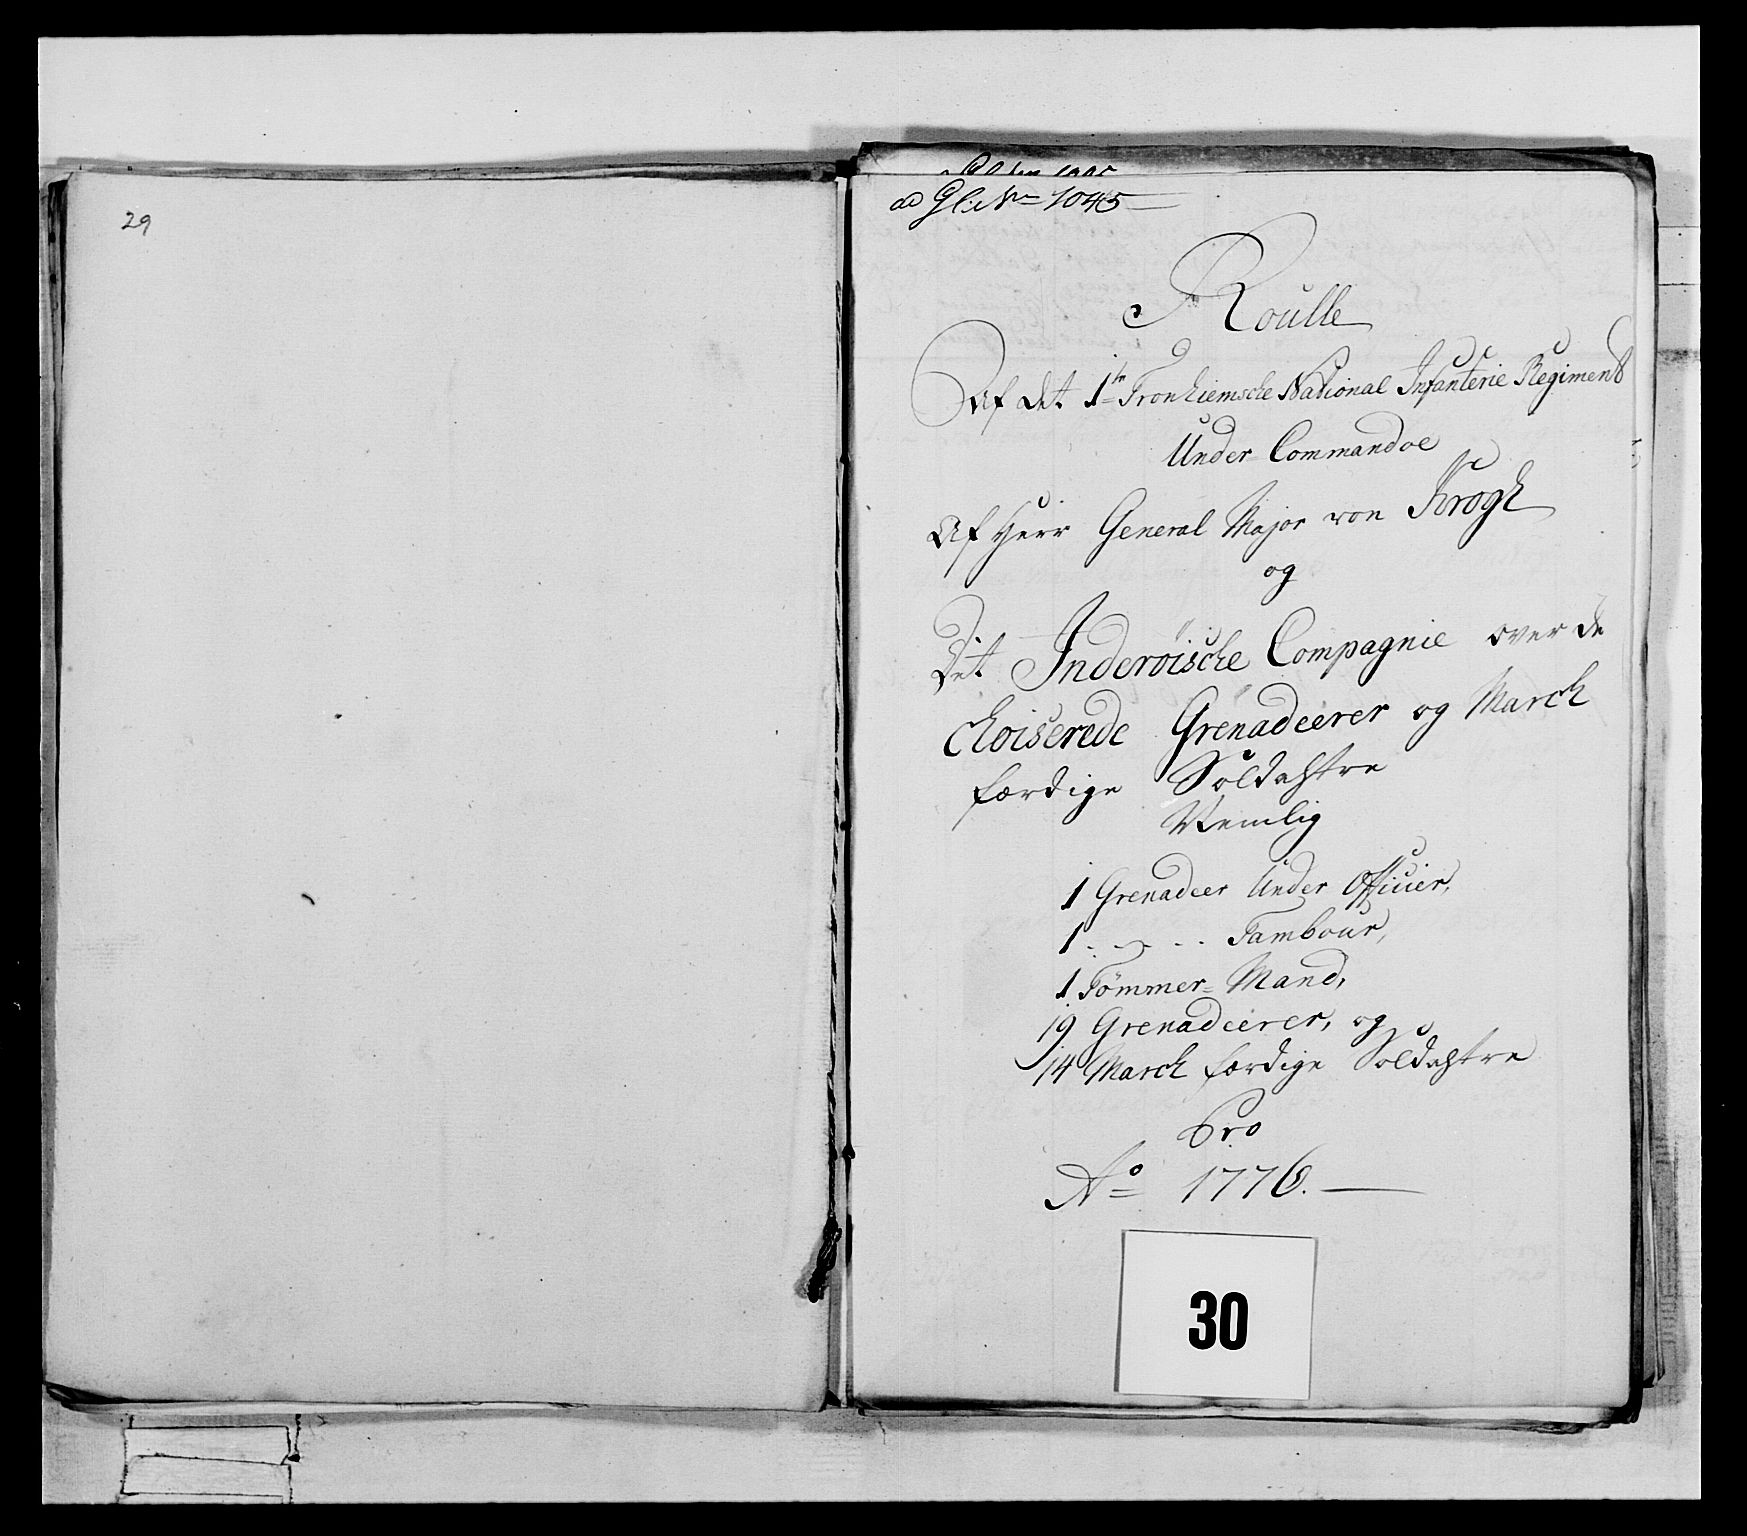 29
ad Gl: No 1045
Roulle
Af det 1te Tronhiemsche National Infanterie Regiment
Under Commandoe
Af Herr General Major von Krogh
og
Det Inderöische Compagnie over de
choiserede Grenadeerer og March
færdige Soldatere
Nemlig
1 Grenadeer Under Officier,
1 - " - - Tambour,
1 Tömmer-Mand,
19 Grenadeerer, og
14 March færdige Soldatere
Pro
Ao 1776.
30